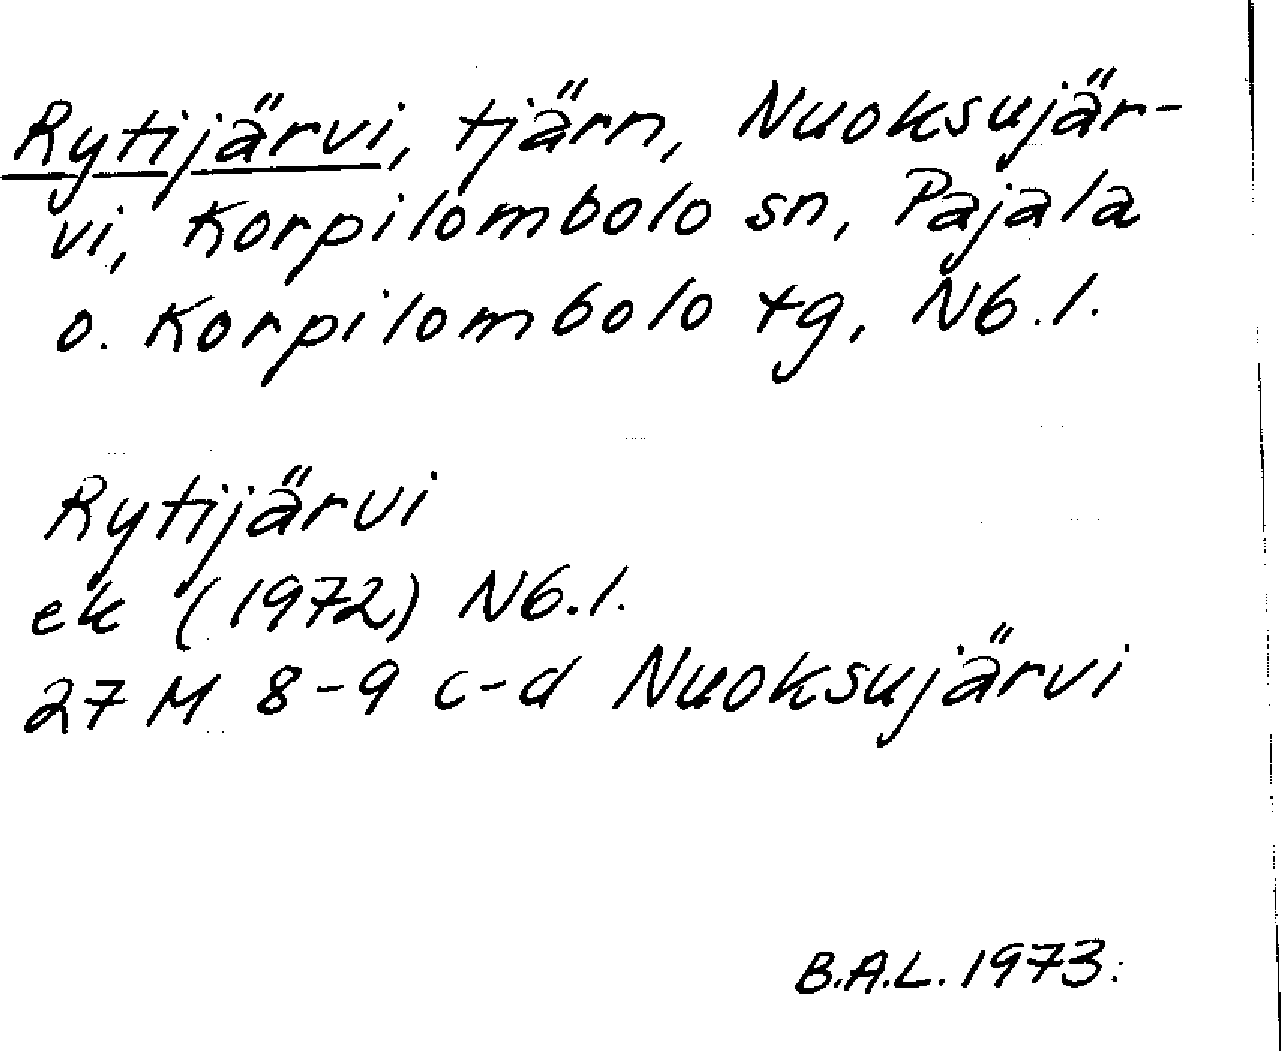 Rytijärvi, tjärn, Nuoksujär-
vi, Korpilombolo sn, Pajala
o. Korpilombolo tg, Nb.l.
Rytijärvi
ek (1972) Nb.l.
27 M 8-9 c-d Nuoksujärvi
B.A.L. 1973.